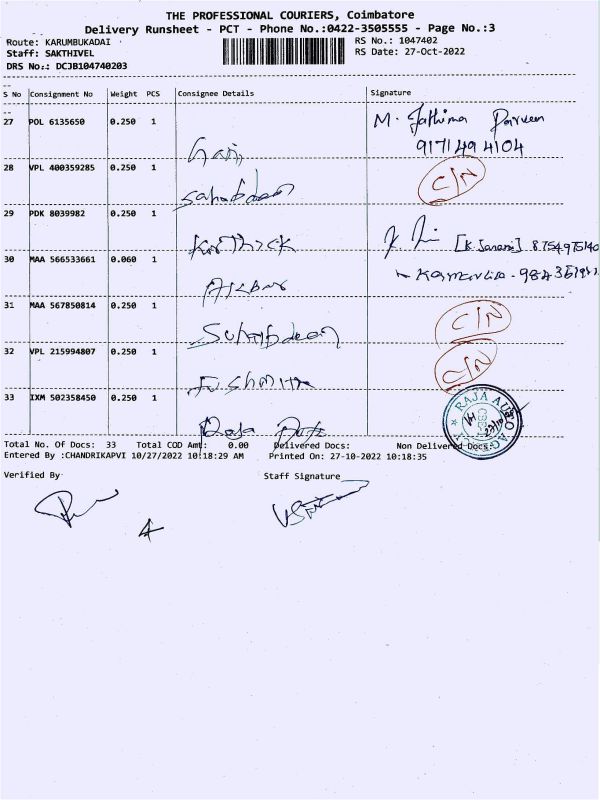 THE PROFESSIONAL COURIERS, Coimbatore
Delivery Runsheet - PCT - Phone No.:0422-3505555 - Page No.:3
Route: KARUMBUKADAI
RS No.: 1047402
Staff: SAKTHIVEL
RS Date: 27-Oct-2022
DRS No.: DCJB104740203
S No Consignment No Weight PCS Consignee Details Signature
27 POL 6135650 0.250 1 M. Fathima Parveen
9171494104
Gani
28 VPL 400359285 0.250 1 C/N
Sahabdeen
29 PDK 8039982 0.250 1
Karthick [K. Janani] 8754975140
30 MAA 566533661 0.060 1
Akbar
31 MAA 567850814 0.250 1 C/N
Suhaibdeen
32 VPL 215994807 0.250 1 C/N
33 IXM 502358450 0.250 1 RAJA AUTO AGENCY
Raja Auto
Total No. Of Docs: 33 Total COD Amt: 0.00 Delivered Docs: Non Delivered Docs:
Entered By :CHANDRIKAPVI 10/27/2022 10:18:29 AM Printed On: 27-10-2022 10:18:35
Verified By Staff Signature